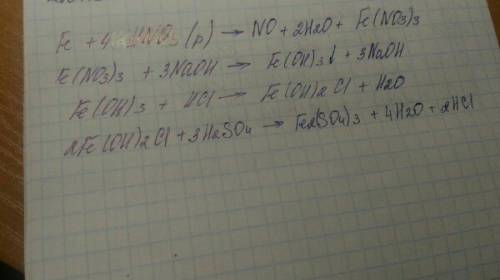 Fe + 4HNO3 (р) → NO + 2H2O + Fe(NO3)3
Fe(NO3)3 + 3NaOH → Fe(OH)3↓ + 3NaOH
Fe(OH)3 + HCl → Fe(OH)2Cl + H2O
2Fe(OH)2Cl + 3H2SO4 → Fe2(SO4)3 + 4H2O + 2HCl